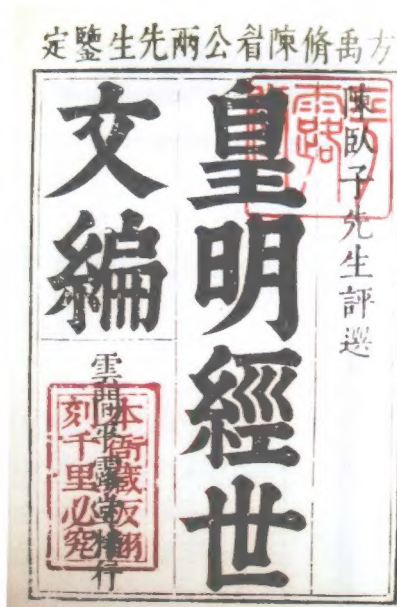 方禹脩陳眉公兩先生鑒定
陳臥子先生評選
皇明經世
文編
雲間平露堂梓行
平露
本衙藏板翻
刻千里必究